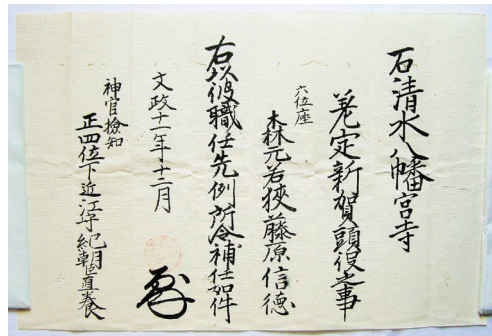 石清水八幡宮寺
差定新賀頭役之事
六位座
森元若狭藤原信徳
右以彼職任先例所令補任如件
文政十一年十二月
神官検知
正四位下近江守紀朝臣直養